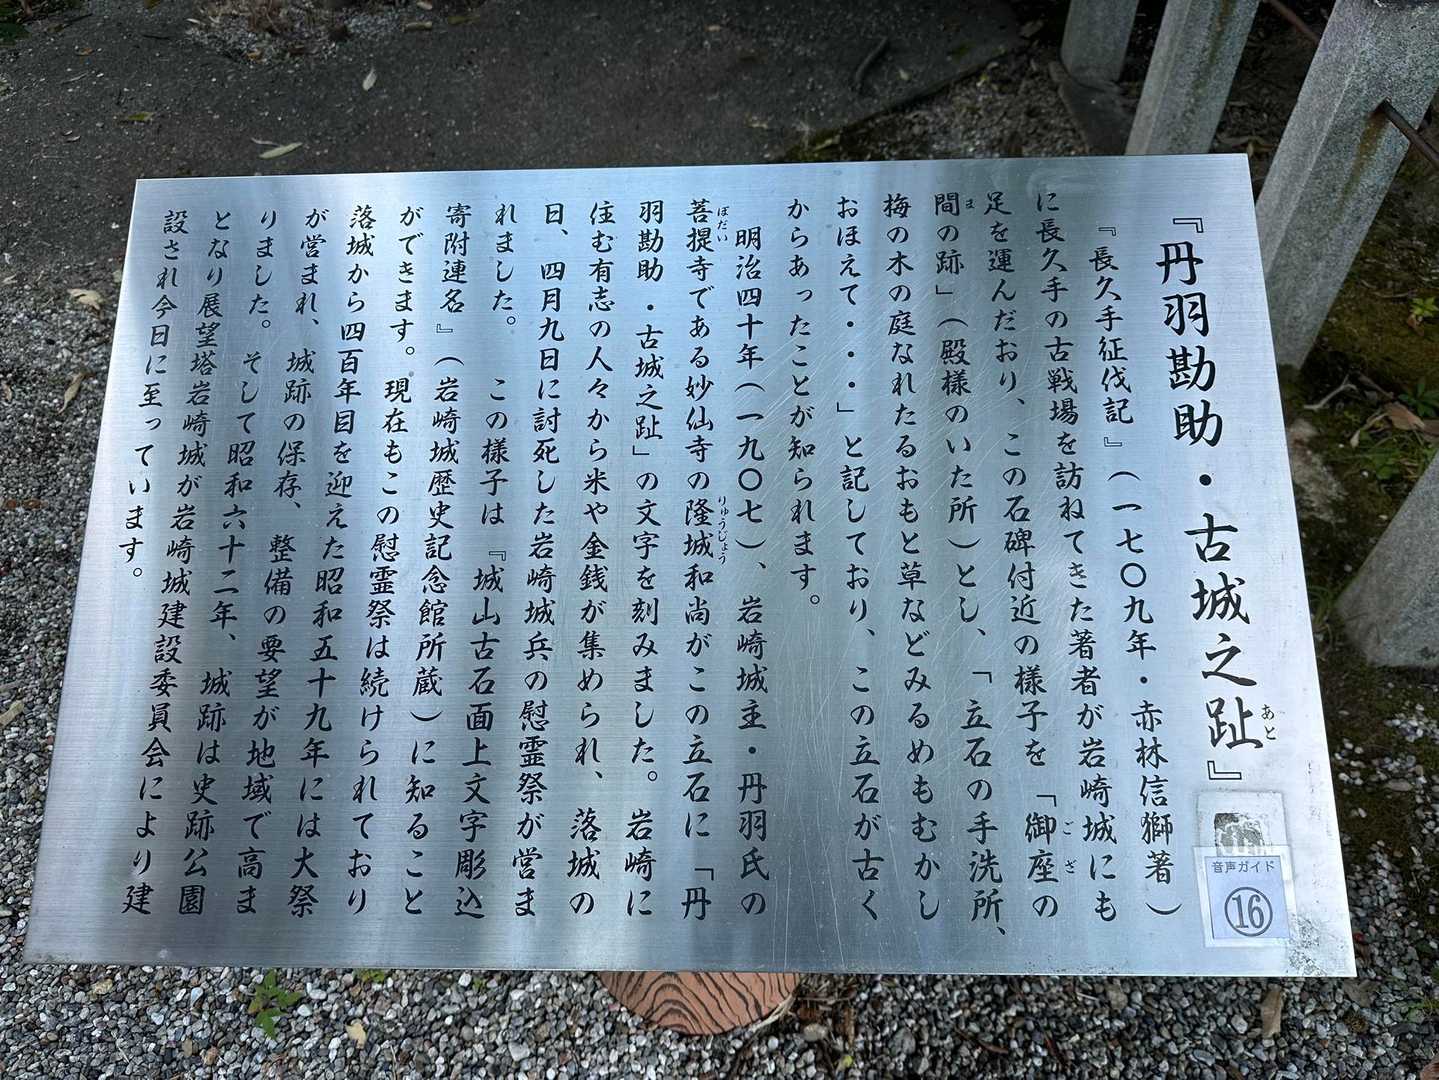 『丹羽勘助・古城之趾』
あと
『長久手征伐記』(一七〇九年・赤林信獅著)
に長久手の古戦場を訪ねてきた著者が岩崎城にも
足を運んだおり、この石碑付近の様子を「御座の
ござ
間の跡」(殿様のいた所)とし、「立石の手洗所、
ま
梅の木の庭なれたるおもと草などみるめもむかし
おぼえて・・・」と記しており、この立石が古く
からあったことが知られます。
明治四十年(一九〇七)、岩崎城主・丹羽氏の
菩提寺である妙仙寺の隆城和尚がこの立石に「丹
ぼだい
りゅうじょう
羽勘助・古城之趾」の文字を刻みました。岩崎に
住む有志の人々から米や金銭が集められ、落城の
日、四月九日に討死した岩崎城兵の慰霊祭が営ま
れました。この様子は『城山古石面上文字彫込
寄附連名』(岩崎城歴史記念館所蔵)に知ること
ができます。現在もこの慰霊祭は続けられており
落城から四百年目を迎えた昭和五十九年には大祭
が営まれ、城跡の保存、整備の要望が地域で高ま
りました。そして昭和六十二年、城跡は史跡公園
となり展望塔岩崎城が岩崎城建設委員会により建
設され今日に至っています。
音声ガイド
⑯